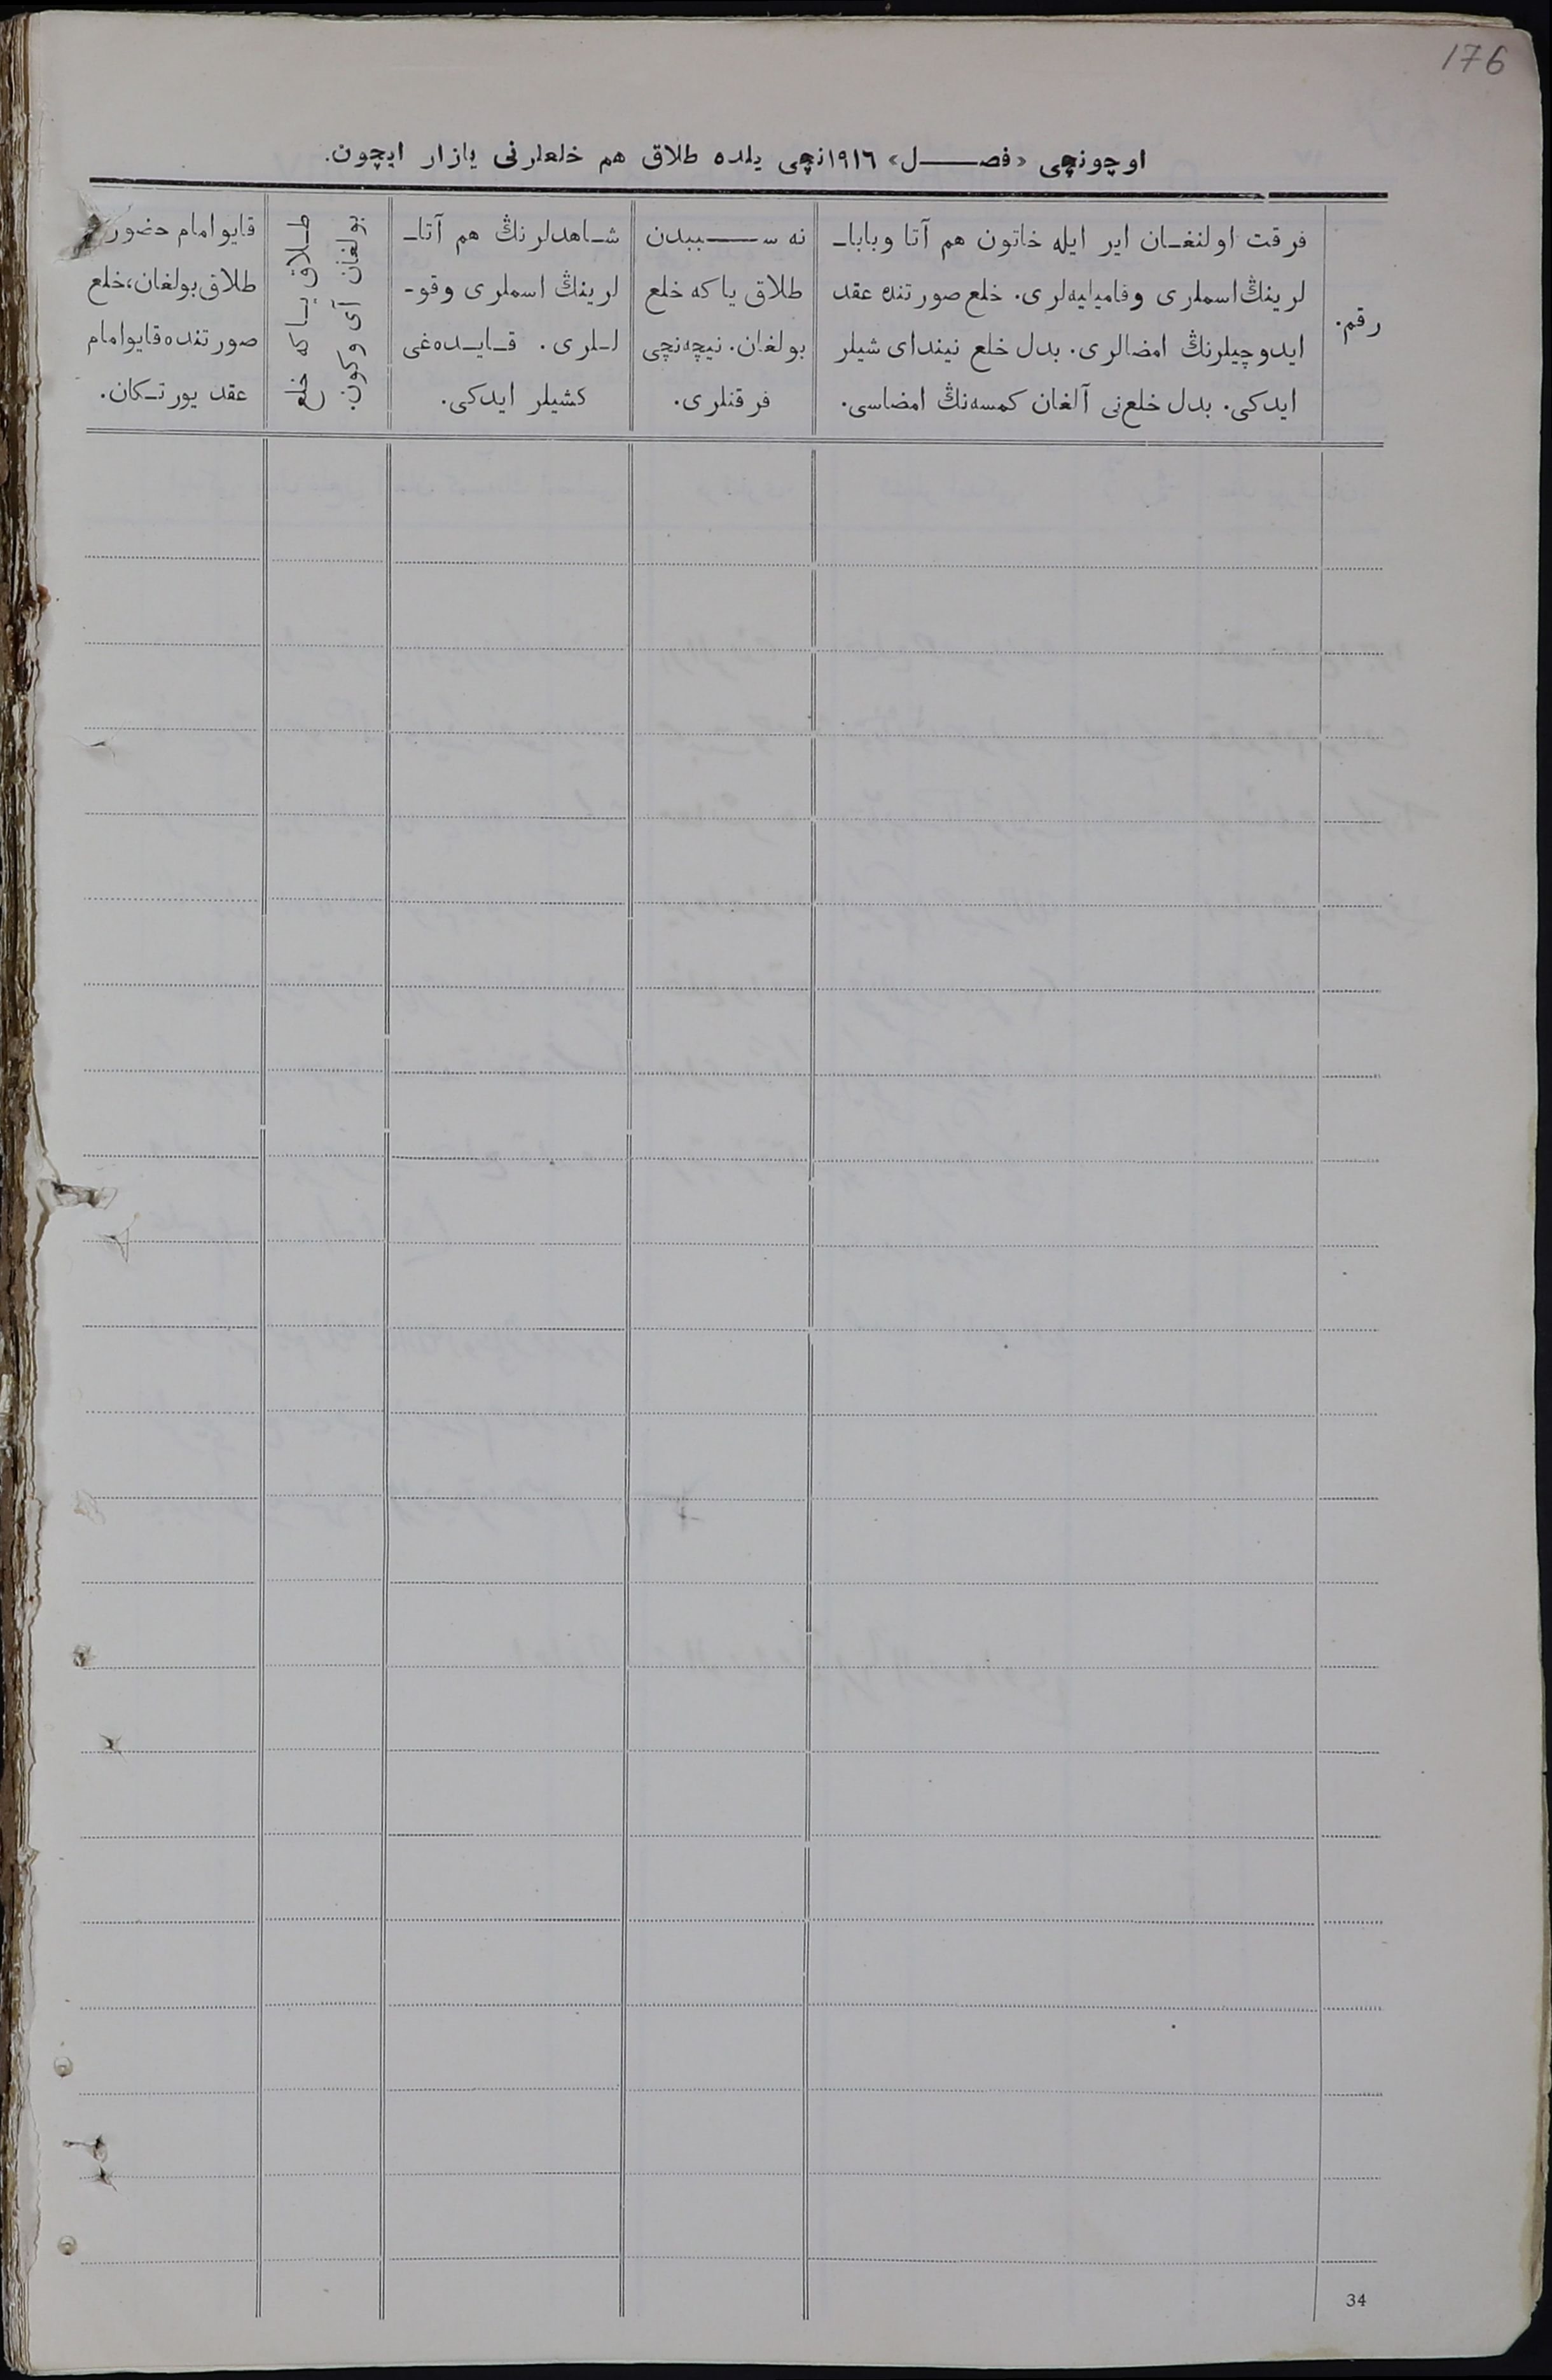 176
اوچونچی «فصل» ١٩١٦نچی یلده طلاق هم خلعلرنی یازار ایچون.
رقم.
فرقت اولنغان ایر ایله خاتون هم آتا وبابا-
لرینڭ اسملری وفامیلیه‌لری. خلع صورتنده عقد
ایدوچیلرنڭ امضالری. بدل خلع نیندای شیلر
ایدکی. بدل خلع‌نی آلغان کمسه‌نڭ امضاسی.
نه سببدن
طلاق یاکه خلع
بولغان. نیچه‌نچی
فرقتلری.
شاهدلرنڭ هم آتا-
لرینڭ اسملری وقو-
للری. قایده‌غی
کشیلر ایدکی.
طلاق یاکه خلع
بولغان آی وکون.
قایو امام حضور
طلاق بولغان، خلع
صورتنده قایو امام
عقد یورتکان.
34